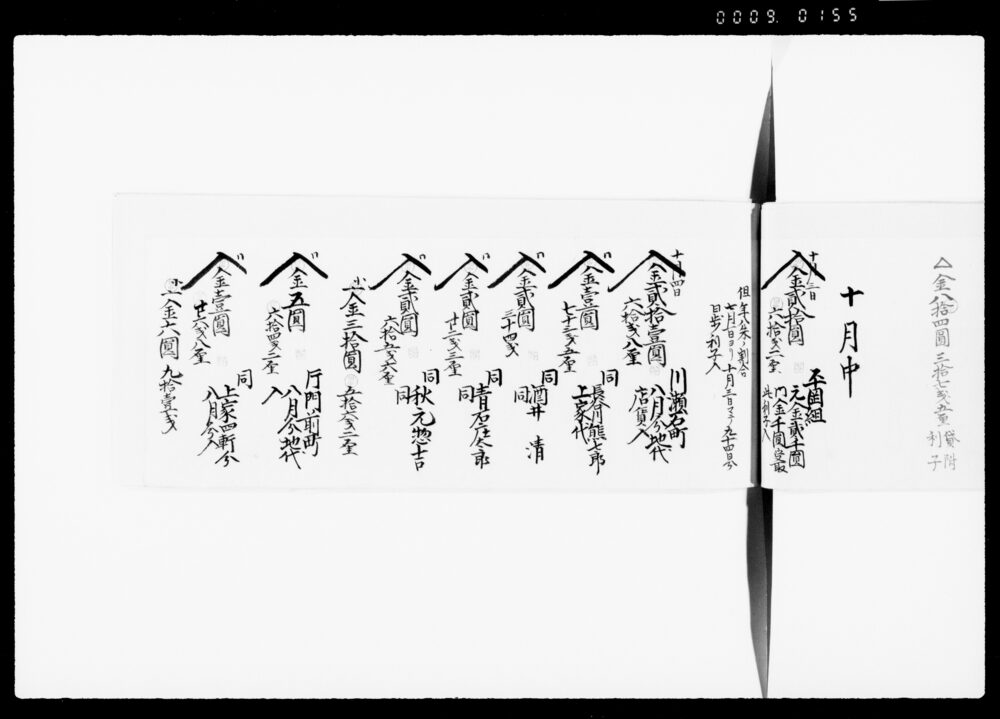 0009. 0155
△金八拾四圓 三拾七戔五厘 貸附
利子
十月中
十月三日
入金貳拾圓
六拾戔二厘
元金貳千圓
門金千圓受取
此利子入
但年八朱ノ割合
七月 日ヨリ十月三日マテ九十四日分
日歩利子入
十月四日
入金貳拾壹圓
六拾戔八厘
川瀬石町
八月分地代
店賃入
入金壹圓
七十三戔五厘
同
長谷川熊三郎
上家代
入金貳圓
三十四戔
同
酒井 清
入金貳圓
廿二戔三厘
同
青石庄太郎
同
入金貳圓
六拾五戔六厘
同
秋元惣吉
同
〆入金三拾圓 五拾六戔二厘
入金五圓
六拾四戔二厘
斤門前町
八月分地代
入
入金壹圓
廿六戔八厘
同
上家四軒分
八月分入
〆入金六圓 九拾壹戔